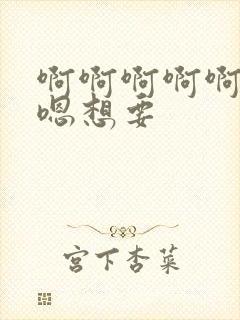 啊啊啊啊啊
嗯想要
宫下杏菜